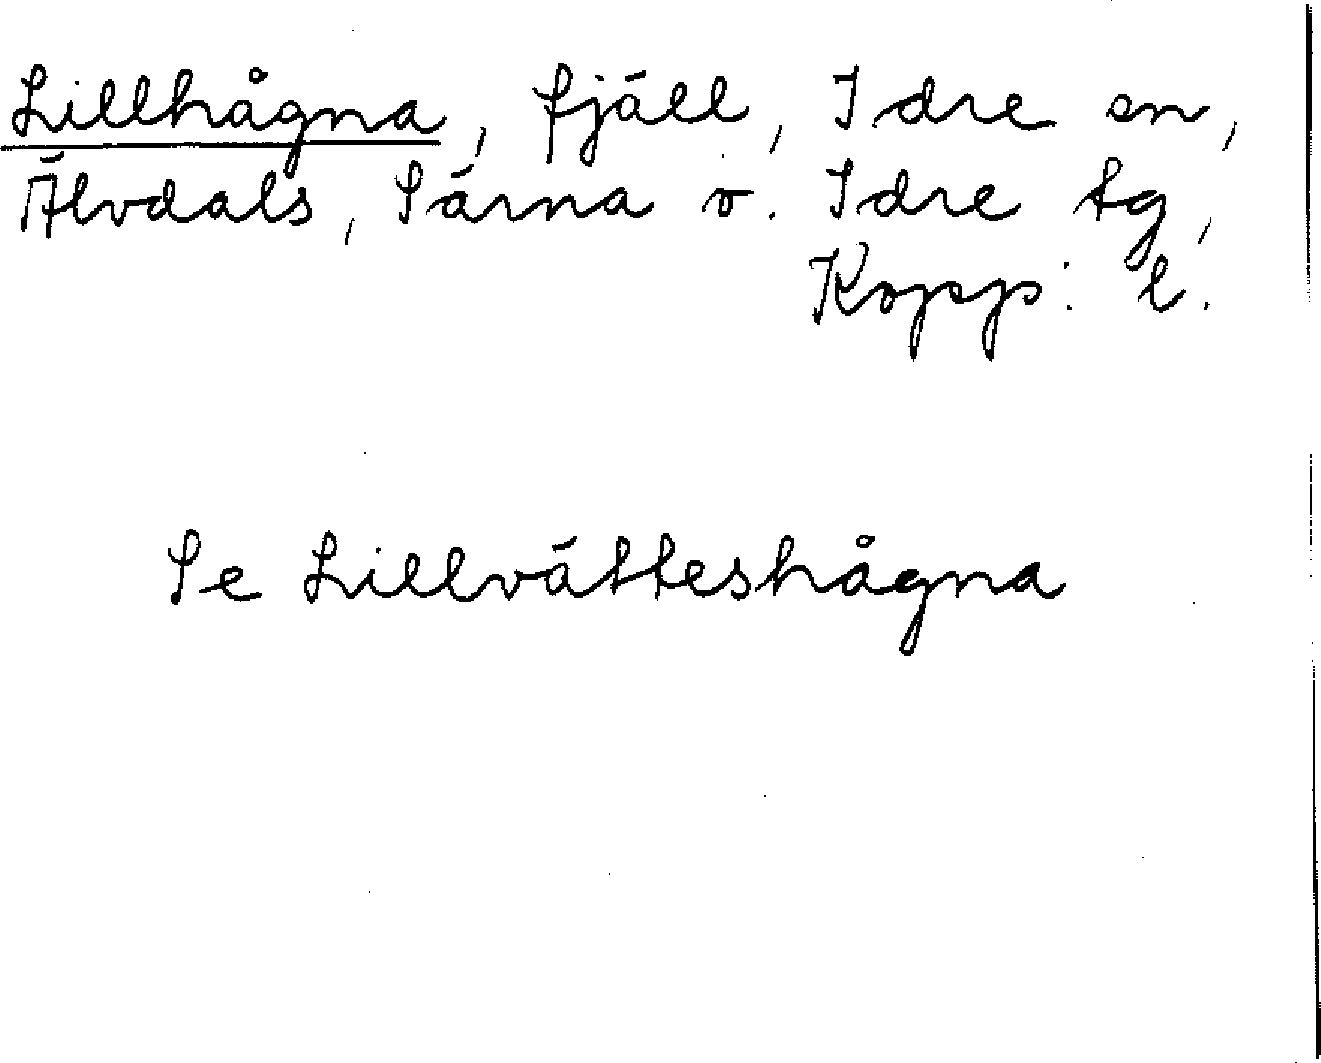 Lillhågna, fjäll, Idre sn,
Älvdals, Särna o. Idre tg,
Kopp: l.
Se Lillvätteshågna